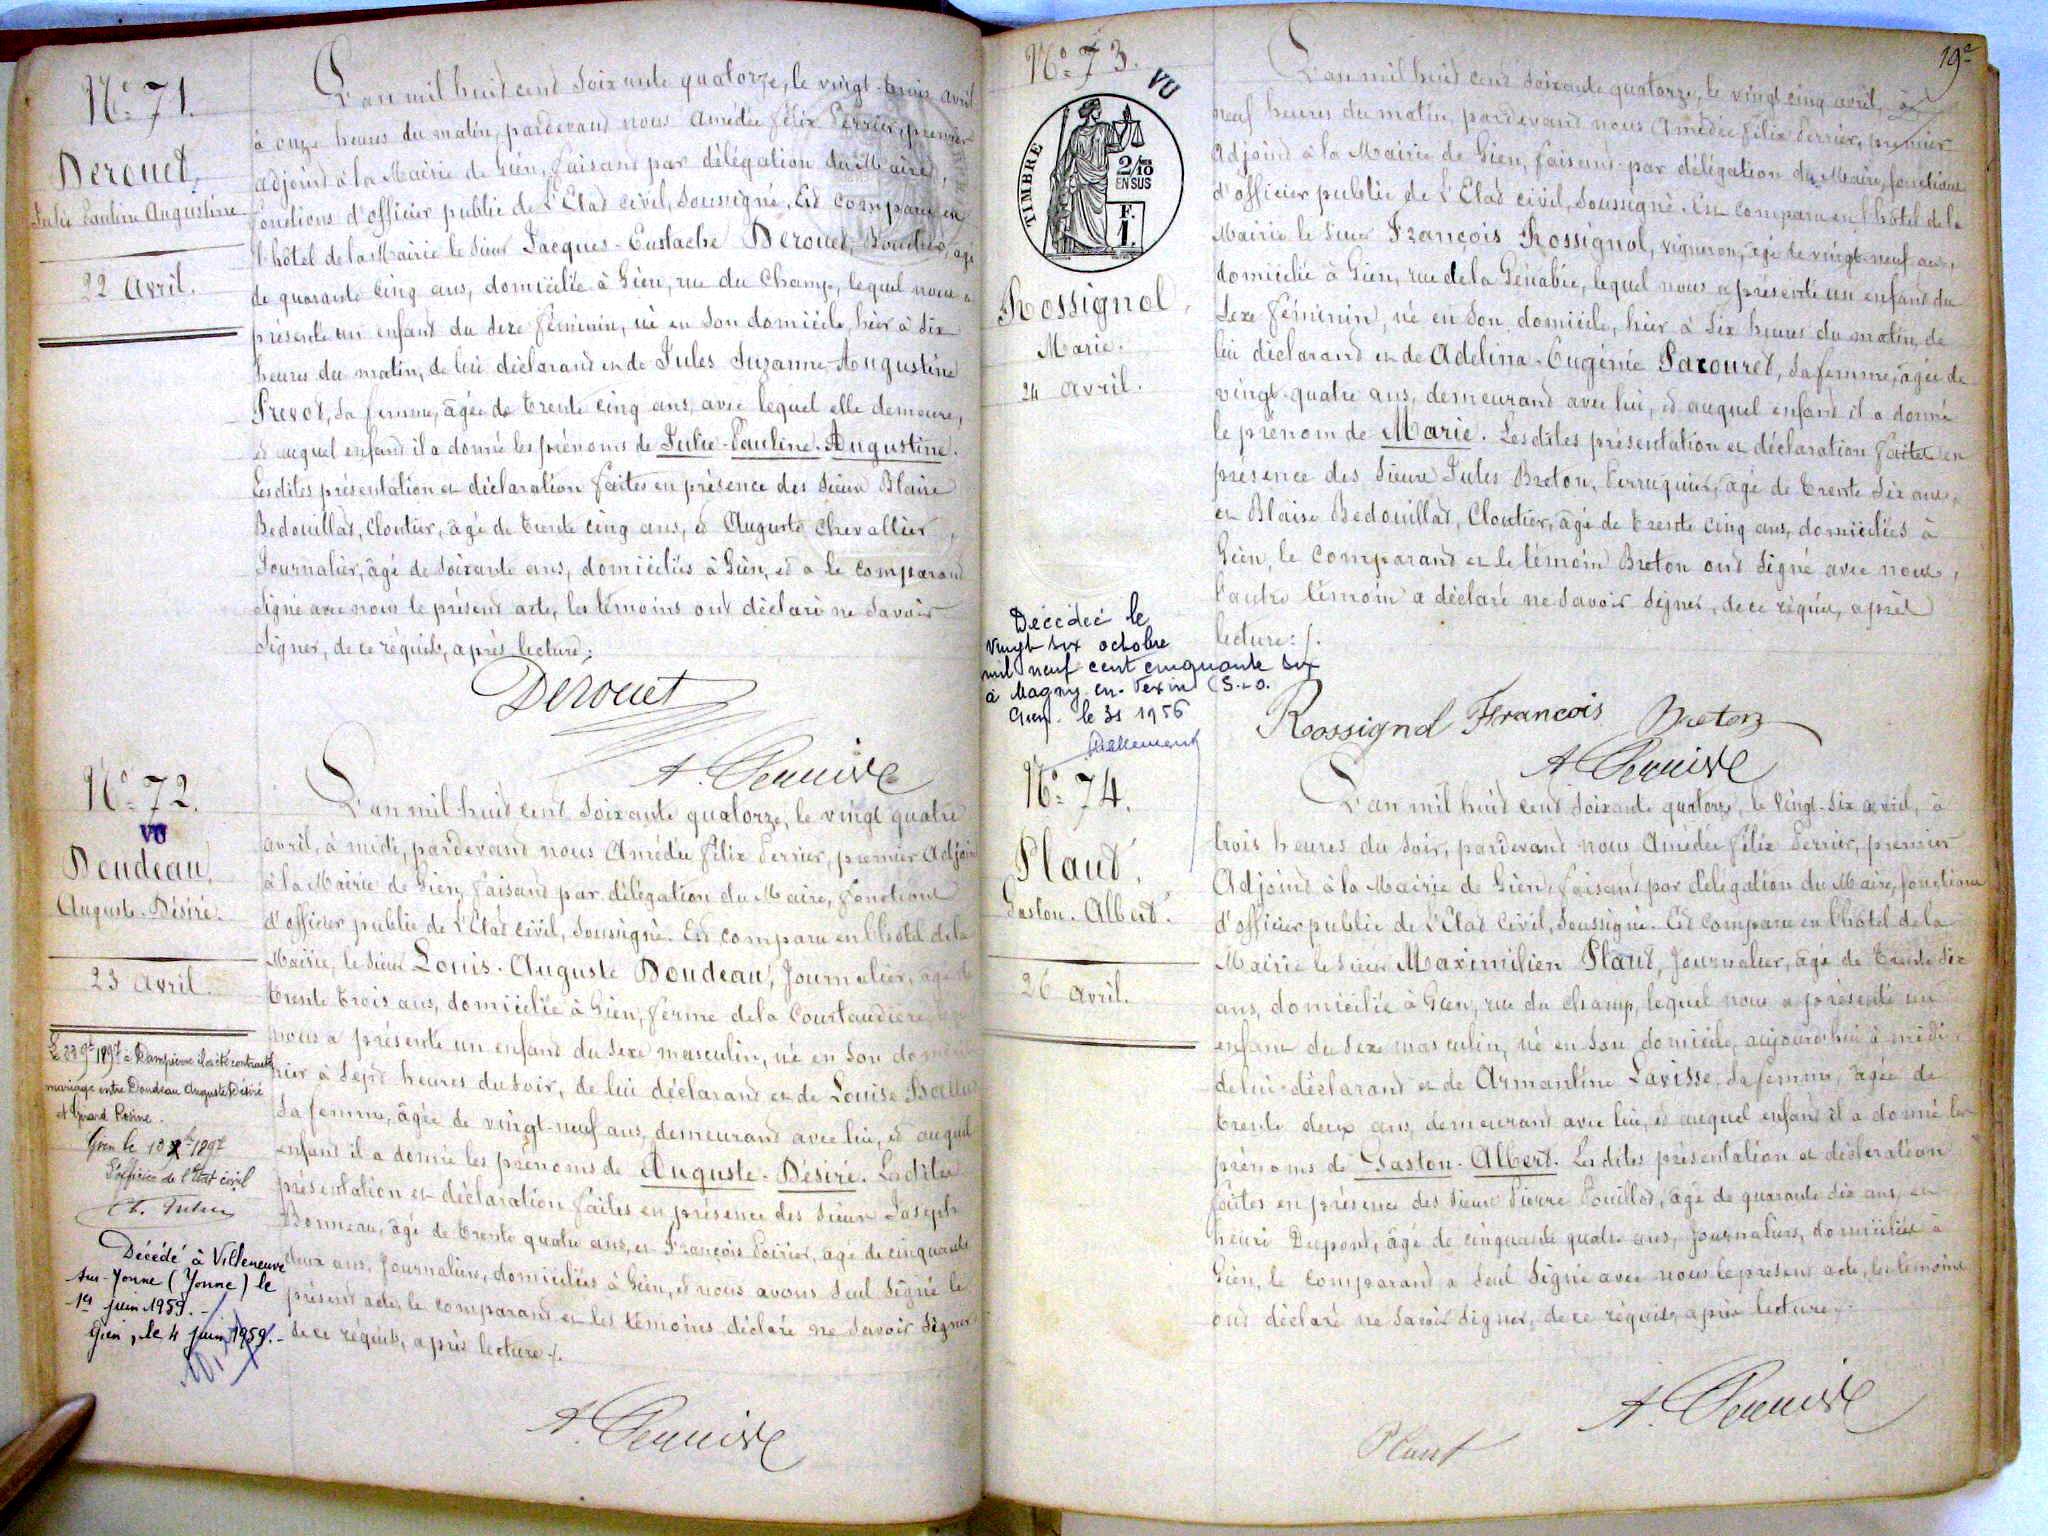 N° 71.
Derouet,
Julie Pauline Augustine
22 avril.
L'an mil huit cent soixante quatorze, le vingt-trois avril
à onze heures du matin, pardevant nous Amédée Félix Perrier, premier
adjoint à la Mairie de Gien, faisant par délégation du Maire,
fonctions d'officier public de l'Etat civil, soussigné. Est comparu en
l'hôtel de la Mairie le sieur Jacques-Eustache Derouet, âgé
de quarante cinq ans, domicilié à Gien, rue du Champ, lequel nous a
présenté un enfant du sexe féminin, né en son domicile, hier à six
heures du matin, de lui déclarant et de Jules Suzanne-Augustine
Prevot, sa femme, âgée de trente cinq ans, avec lequel elle demeure,
et auquel enfant il a donné les prénoms de Julie-Pauline-Augustine.
Lesdites présentation et déclaration faites en présence des sieurs Blaise
Bedouillat, Cloutier, âgé de trente cinq ans, et Auguste Chevallier,
Journalier, âgé de soixante ans, domiciliés à Gien, et a le comparant
signé avec nous le présent acte, les témoins ont déclaré ne savoir
signer, de ce réquis, après lecture;
Derouet
N° 72.
VU
Doudeau,
Auguste-Désiré.
23 avril.
L'an mil huit cent soixante quatorze, le vingt quatre
avril, à midi, pardevant nous Amédée Félix Perrier, premier Adjoint
à la Mairie de Gien, faisant par délégation du Maire, fonctions
d'officier public de l'Etat civil, soussigné. Est comparu en l'hôtel de la
Mairie, le sieur Louis-Auguste Doudeau, Journalier, âgé de
trente trois ans, domicilié à Gien, ferme de la Courtaudière
nous a présenté un enfant du sexe masculin, né en son
hier à sept heures du soir, de lui déclarant et de Louise
sa femme, âgée de vingt-neuf ans, demeurant avec lui, et auquel
enfant il a donné les prénoms de Auguste-Désiré. Lesdites
présentation et déclaration faites en présence des sieurs Joseph
Bonneau, âgé de trente quatre ans, et François Poirier, âgé de cinquante
deux ans, Journaliers, domiciliés à Gien, et nous avons seul signé le
présent acte, le comparant et les témoins déclaré ne savoir signer
de ce réquis, après lecture ./.
1897 à Dampierre il a été contracté
mariage entre Doudeau Auguste Désiré
et
Gien le 1897
L'officier de l'Etat civil
Décédé à Villeneuve
sur-Yonne (Yonne) le
1er juin 1959.-
Gien, le 4 juin 1959.-
19e
N° 73.
VU
TIMBRE
2/10 EN SUS
F.
1.
Rossignol,
Marie.
24 avril.
L'an mil huit cent soixante quatorze, le vingt cinq avril, à
neuf heures du matin, pardevant nous Amédée Félix Perrier, premier
Adjoint à la Mairie de Gien, faisant par délégation du Maire, fonctions
d'officier public de l'Etat civil, soussigné. Est comparu en l'hôtel de la
Mairie le sieur François Rossignol, vigneron, âgé de vingt-neuf ans,
domicilié à Gien, rue de la Génabie, lequel nous a présenté un enfant du
sexe féminin, né en son domicile, hier à six heures du matin, de
lui déclarant et de Adelina-Eugénie sa femme, âgée de
vingt-quatre ans, demeurant avec lui, et auquel enfant il a donné
le prénom de Marie. Lesdites présentation et déclaration faites en
présence des sieurs Jules Breton, Perruquier, âgé de trente six ans,
et Blaise Bedouillat, Cloutier, âgé de trente cinq ans, domiciliés à
Gien, le comparant et le témoin Breton ont signé avec nous,
l'autre témoin a déclaré ne savoir signer, de ce réquis, après
lecture:/.
Rossignol François Breton
Décédée le
vingt six octobre
mil neuf cent cinquante six
à Magny-en-Vexin (S.-&-O.
Gien. le 31 1956
N° 74.
Plaut,
Gaston-Albert.
26 avril.
L'an mil huit cent soixante quatorze, le vingt-six avril, à
trois heures du soir, pardevant nous Amédée Félix Perrier, premier
Adjoint à la Mairie de Gien, faisant par délégation du Maire, fonctions
d'officier public de l'Etat civil, soussigné. Est comparu en l'hôtel de la
Mairie le sieur Maximilien Plaut, Journalier, âgé de trente six
ans, domicilié à Gien, rue du Champ, lequel nous a présenté un
enfant du sexe masculin, né en son domicile, aujourd'hui à midi
de lui déclarant et de Armantine Lavisse, sa femme, âgée de
trente deux ans, demeurant avec lui, et auquel enfant il a donné les
prénoms de Gaston-Albert. Lesdites présentation et déclaration
faites en présence des sieurs Pierre Pouillot, âgé de quarante six ans, et
henri Dupont, âgé de cinquante quatre ans, Journaliers, domiciliés à
Gien, le comparant a seul signé avec nous le présent acte, les témoins
ont déclaré ne savoir signer, de ce réquis, après lecture ./.
Plaut